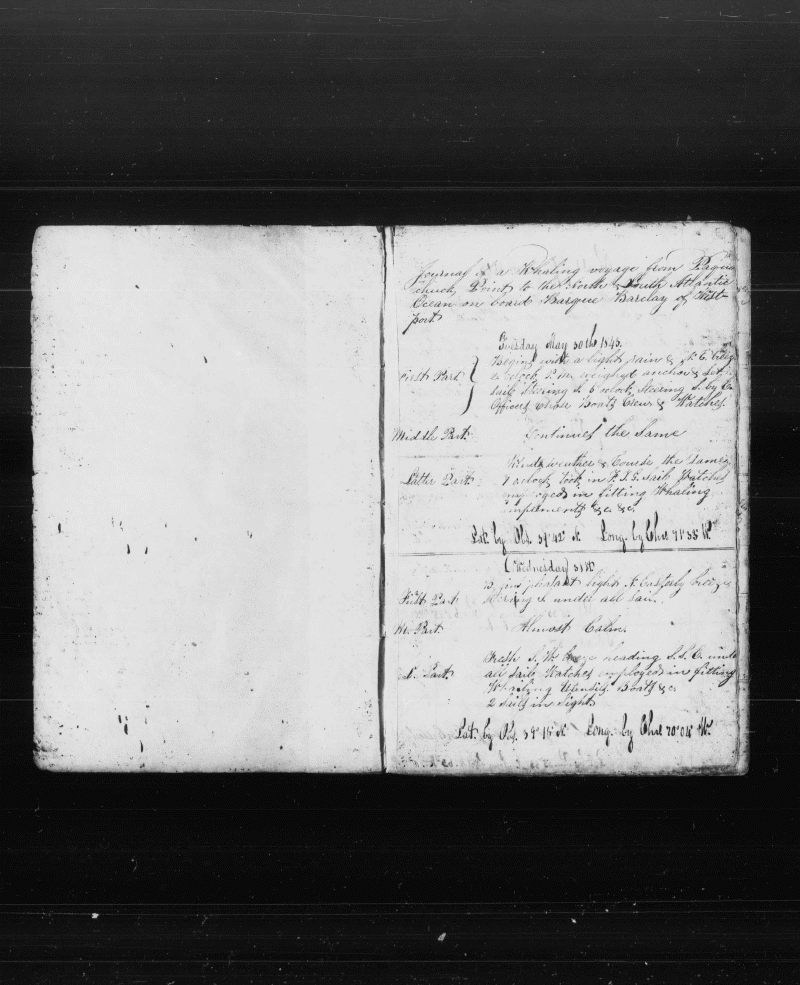 Journal of a Whaling voyage from Paqua
chuck Point to the North & South Atlantic
Ocean on board Barque Barclay of West-
port
Tuesday May 30th 1843.
First Part } Begins with a light rain & N. E.
o clock P.m. weighed anchor & set
sail Steering S. 6 oclock, Steering S. by E.
Officers chose Boats Crews & Watches.
Middle Part Continues the same
Latter Part Wind, weather & Course the same
7 oclock, took in F. T. G. sail Watches
employed in fitting Whaling
implements &c. &c.
Lat. by Obs. 39° 42' N Long. by Chro 71° 35' W
(Wednesday) 31st
First Part pleasant light N. Easterly breeze
Steering S under all Sail.
M. Part Almost Calm.
L. Part Fresh S. W. breeze heading S. S. E. unde
all Sail Watches employed in fitting
Whaling Utensils Boats &c.
2 Sails in Sight
Lat. by Obs. 39° 15' N Long. by Chro 70° 04' W.